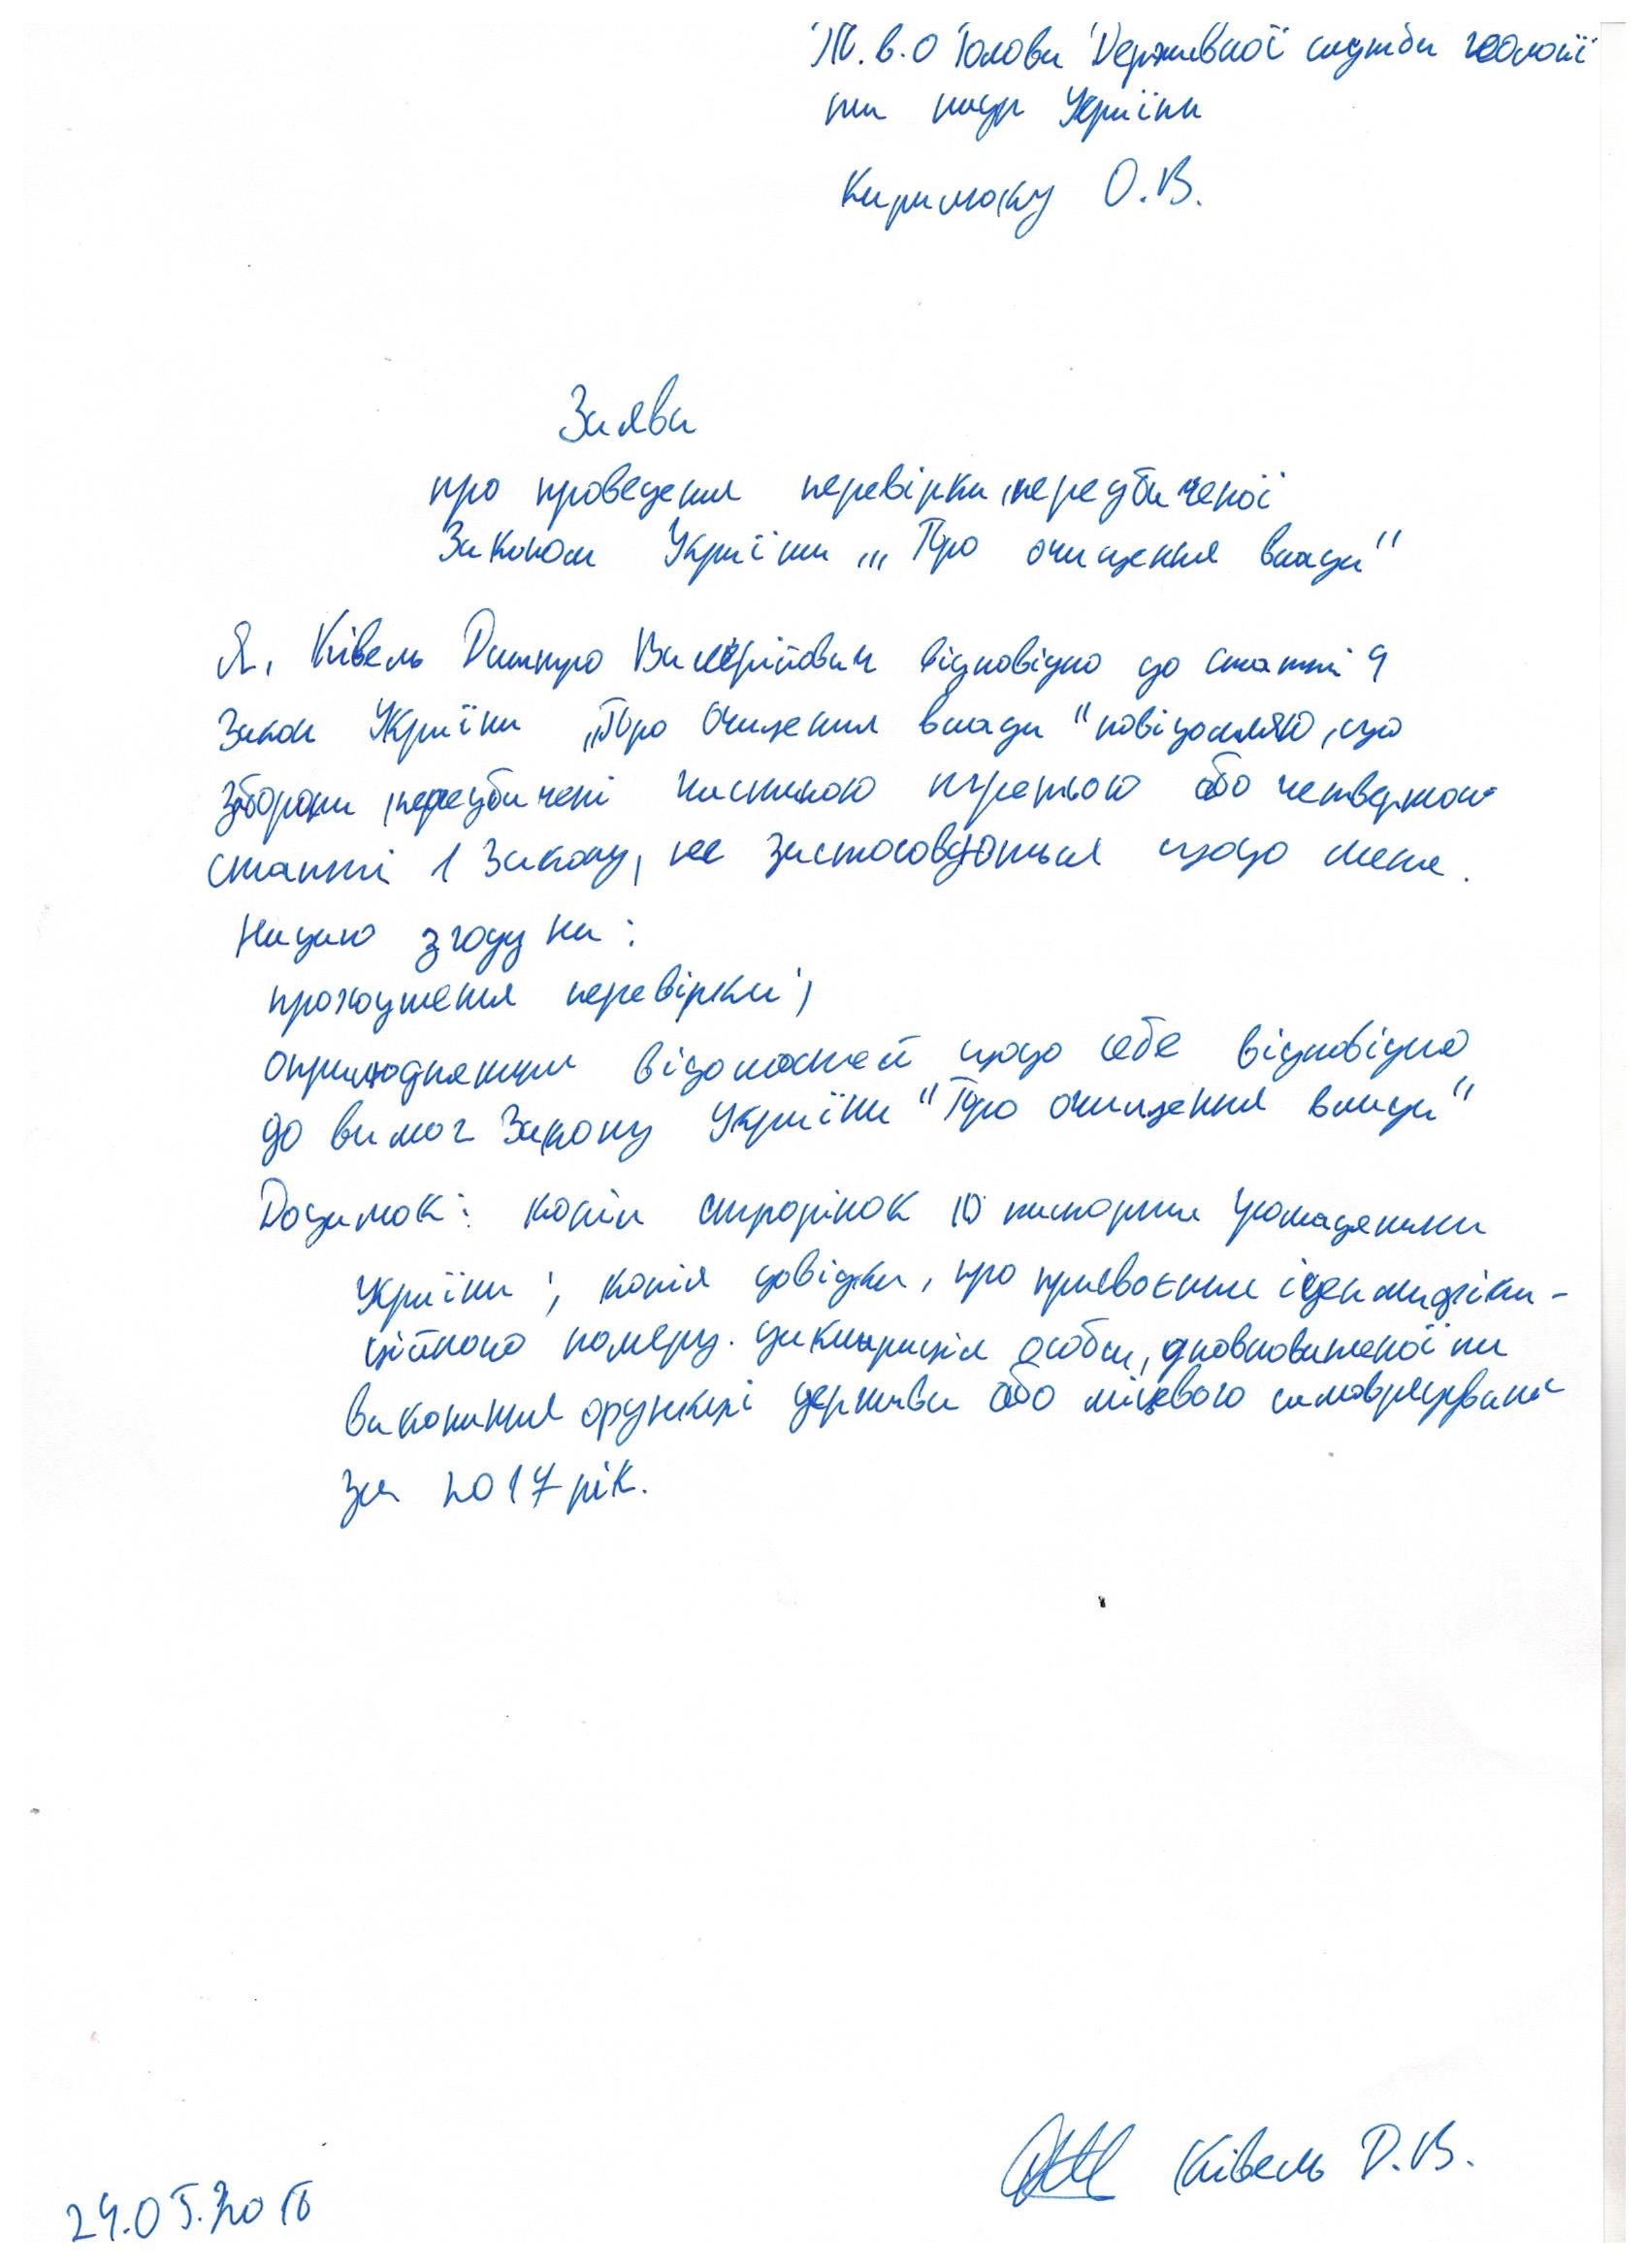 Т.в.о Голови Державної служби геології
та надр України
Кирилюку О.В.
Заява
про проведення перевірки, передбаченої
Законом України „Про очищення влади"
Я, Ківель Дмитро Валерійович відповідно до статті 4
Закон України „Про Очищення влади" повідомляю, що
заборони, передбачені частиною третьою або четвертою
статті 1 Закону, не застосовуються щодо мене.
Надаю згоду на:
проходження перевірки;
оприлюднення відомостей щодо себе відповідно
до вимог Закону України "Про очищення влади"
Додаток: копія сторінок паспорта громадянина
України; копія довідки, про присвоєння ідентифіка-
ційного номеру. декларація особи, уповноваженої на
виконання функції держави або місцевого самоврядування
за 2017 рік.
Ківель Д.В.